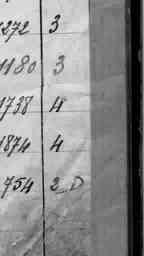 1272 3
1180 3
1738 4
1874 4
754 2 D